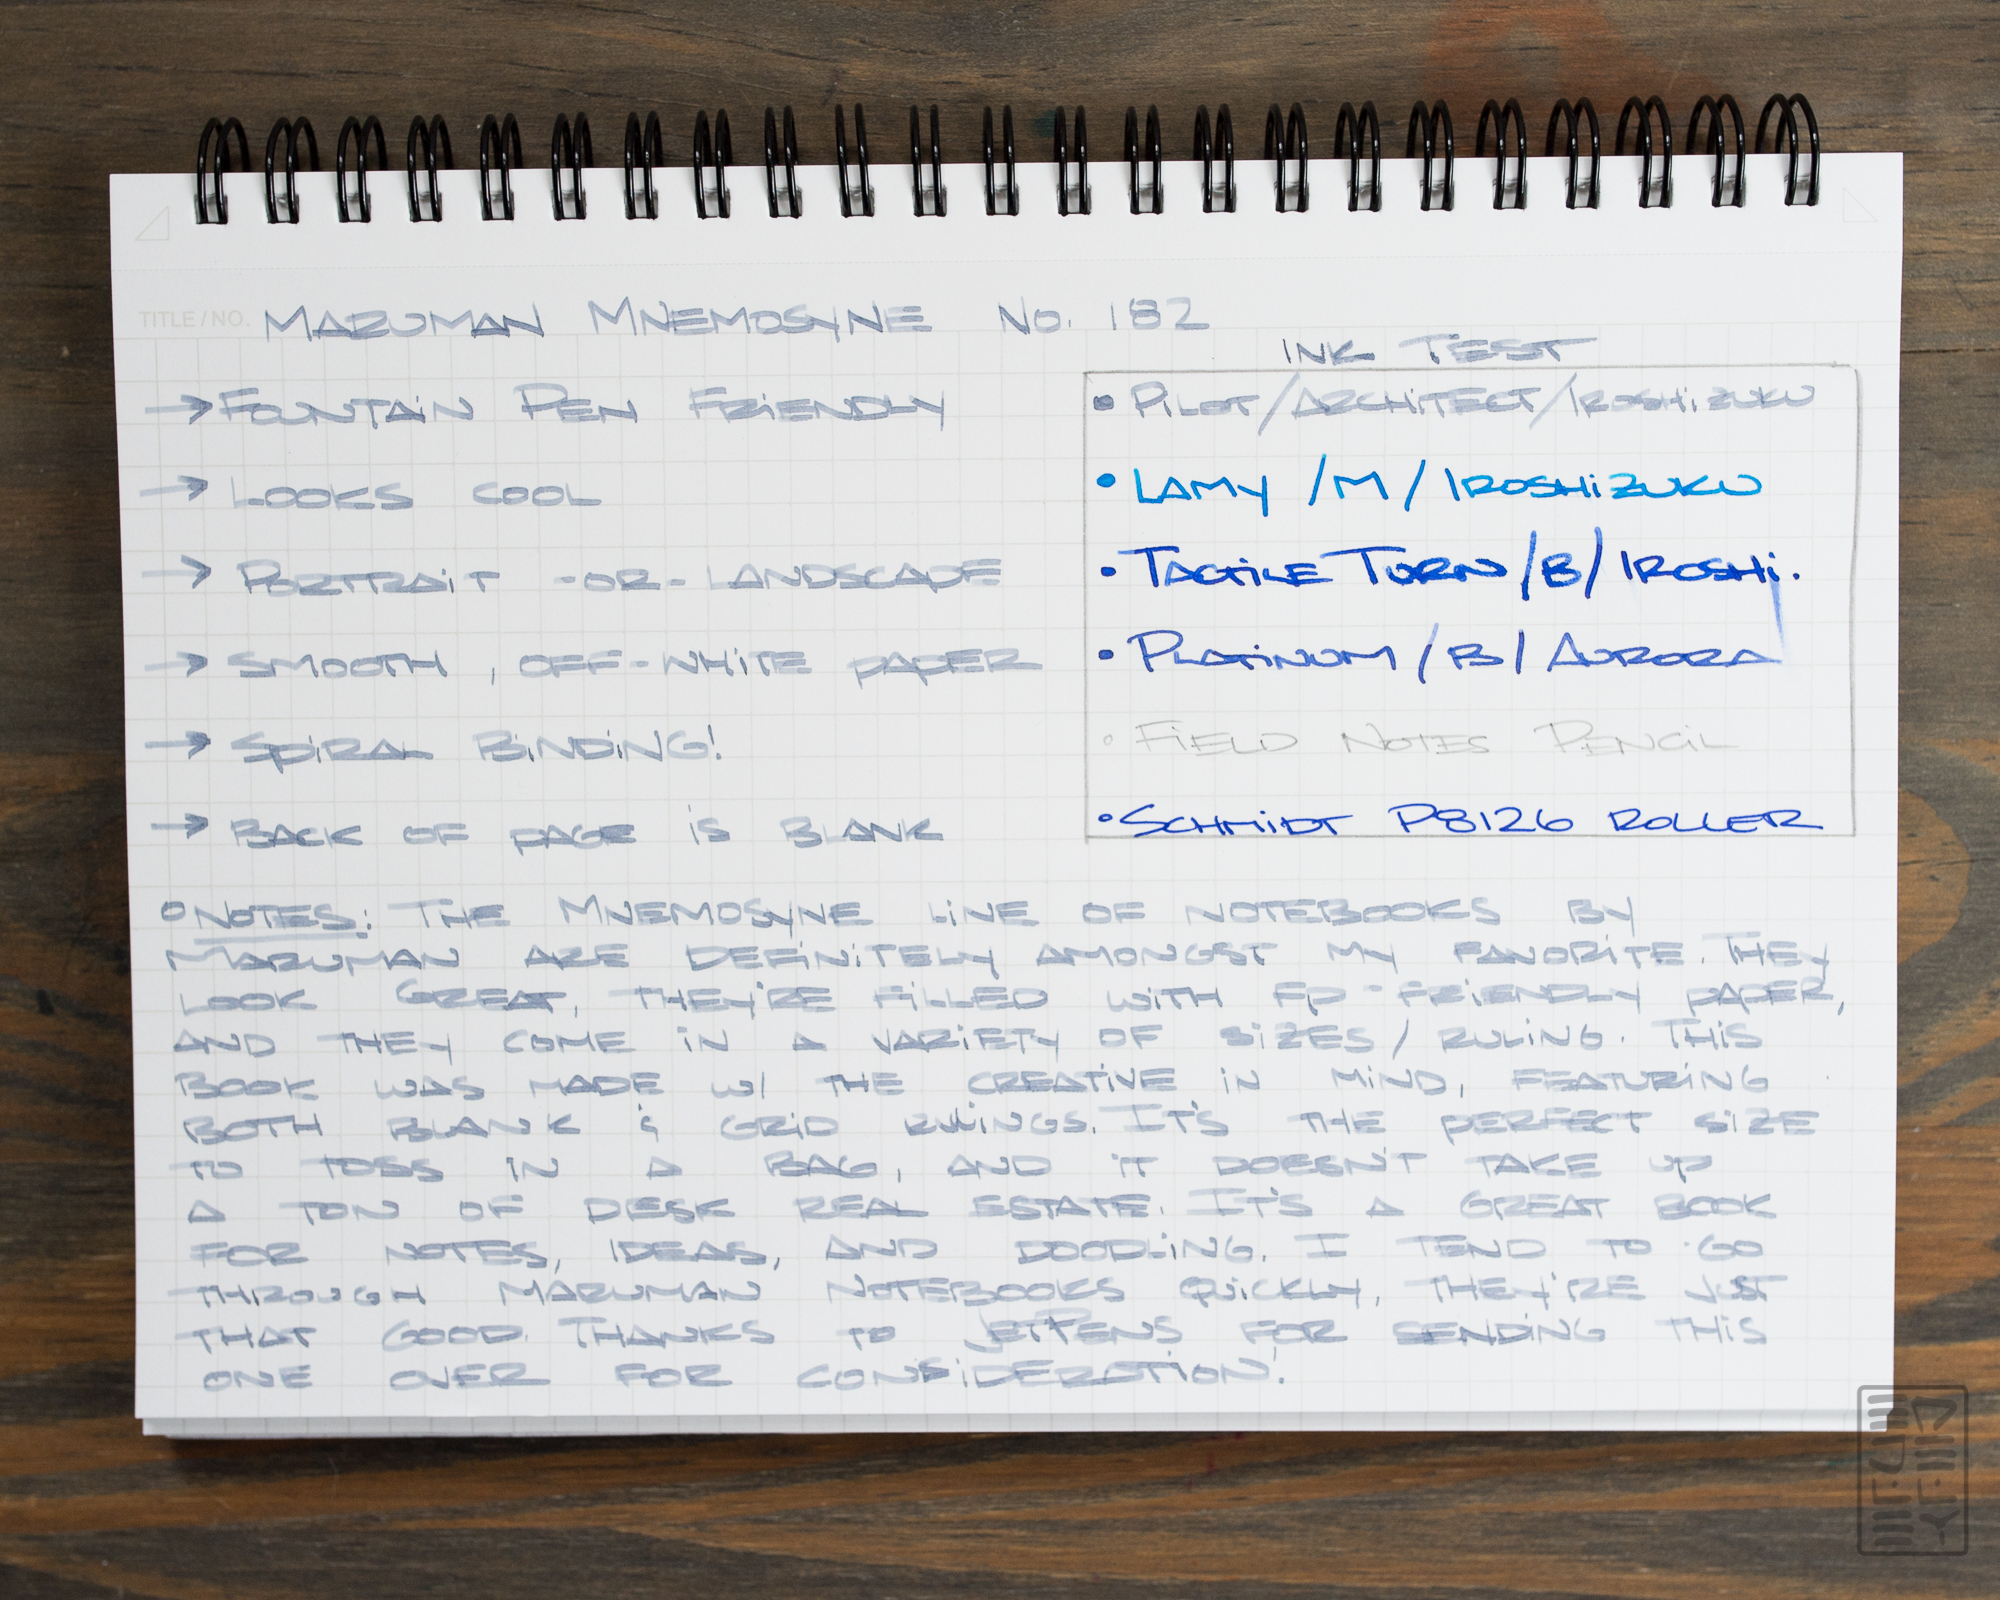 TITLE/NO. MARUMAN MNEMOSYNE NO. 182
→ FOUNTAIN PEN FRIENDLY
→ LOOKS COOL
→ PORTRAIT -OR- LANDSCAPE
→ SMOOTH, OFF-WHITE PAPER
→ SPIRAL BINDING!
→ BACK OF PAGE IS BLANK
INK TEST
• PILOT/ARCHITECT/IROSHIZUKU
• LAMY /M/ IROSHIZUKU
• TACTILE TURN /B/ IROSHI.
• PLATINUM /B/ AURORA
• FIELD NOTES PENCIL
• SCHMIDT P8126 ROLLER
NOTES: THE MNEMOSYNE LINE OF NOTEBOOKS BY
MARUMAN ARE DEFINITELY AMONGST MY FAVORITE. THEY
LOOK GREAT, THEY'RE FILLED WITH FP-FRIENDLY PAPER,
AND THEY COME IN A VARIETY OF SIZES/RULING. THIS
BOOK WAS MADE W/ THE CREATIVE IN MIND, FEATURING
BOTH BLANK & GRID RULINGS. IT'S THE PERFECT SIZE
TO TOSS IN A BAG, AND IT DOESN'T TAKE UP
A TON OF DESK REAL ESTATE. IT'S A GREAT BOOK
FOR NOTES, IDEAS, AND DOODLING. I TEND TO GO
THROUGH MARUMAN NOTEBOOKS QUICKLY, THEY'RE JUST
THAT GOOD. THANKS TO JETPENS FOR SENDING THIS
ONE OVER FOR CONSIDERATION!